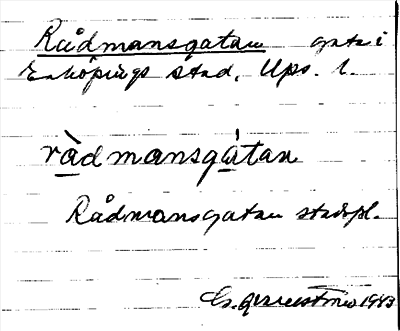 Rådmansgatan gata i
Enköpings stad, Ups. l.
rådmansgatan
Rådmansgatan stadspl.
1943